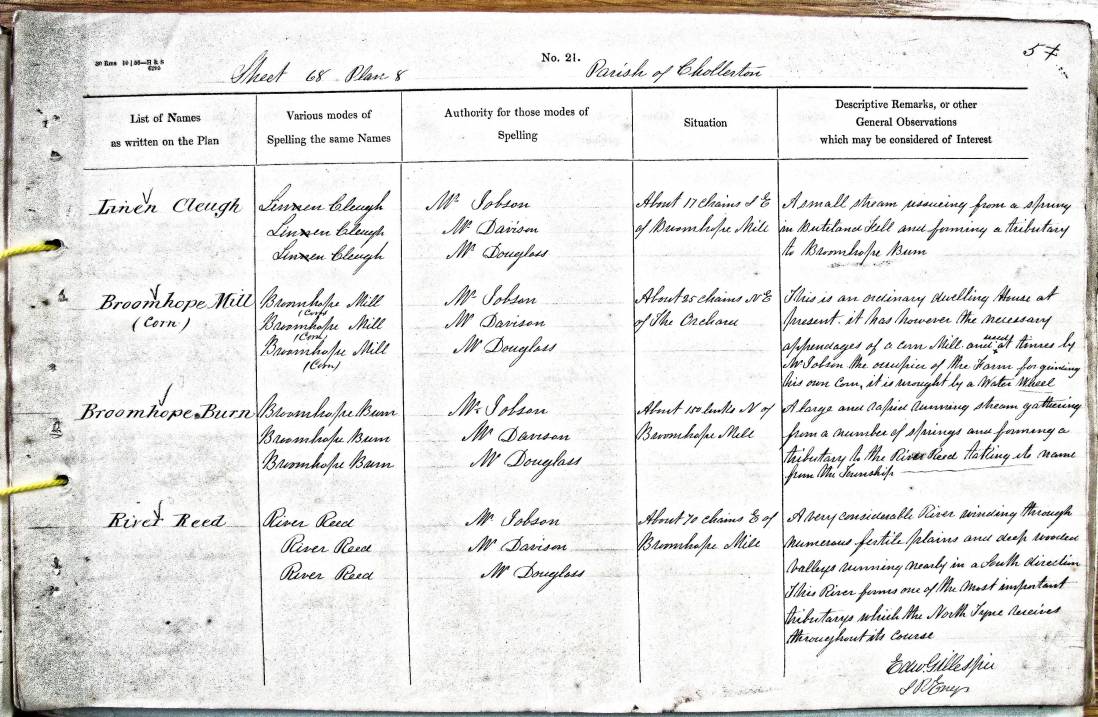 30 Rms 10 | 56—H & S
6295
No. 21.
Sheet 68 Plan 8
Parish of Chollerton
List of Names
as written on the Plan
Various modes of
Spelling the same Names
Authority for those modes of
Spelling
Situation
Descriptive Remarks, or other
General Observations
which may be considered of Interest
Linen Cleugh
Linnen Cleugh
Linnen Cleugh
Linnen Cleugh
Mr Jobson
Mr Davison
Mr Douglass
About 17 chains S E
of Broomhope Mill
A small stream issueing from a spring
in Buteland Fell and forming a tributary
to Broomhope Burn
Broomhope Mill
(Corn)
Broomhope Mill
(Corn)
Broomhope Mill
(Corn)
Broomhope Mill
(Corn)
Mr Jobson
Mr Davison
Mr Douglass
About 25 chains N E
of The Orchard
This is an ordinary dwelling House at
present. it has however the necessary
appendages of a corn Mill and used at times by
Mr Jobson the occupier of the Farm for grinding
his own corn, it is wrought by a Water Wheel
Broomhope Burn
Broomhope Burn
Broomhope Burn
Broomhope Burn
Mr Jobson
Mr Davison
Mr Douglass
About 150 links N of
Broomhope Mill
A large and rapid running stream gathering
from a number of springs and forming a
tributary to the River Reed taking its name
from the Township
River Reed
River Reed
River Reed
River Reed
Mr Jobson
Mr Davison
Mr Douglass
About 70 chains E of
Broomhope Mill
A very considerable River winding through
numerous fertile plains and deep wooded
valleys running nearly in a South direction
This River forms one of the most important
tributarys which the North Tyne receives
throughout its course
Edw Gillespie